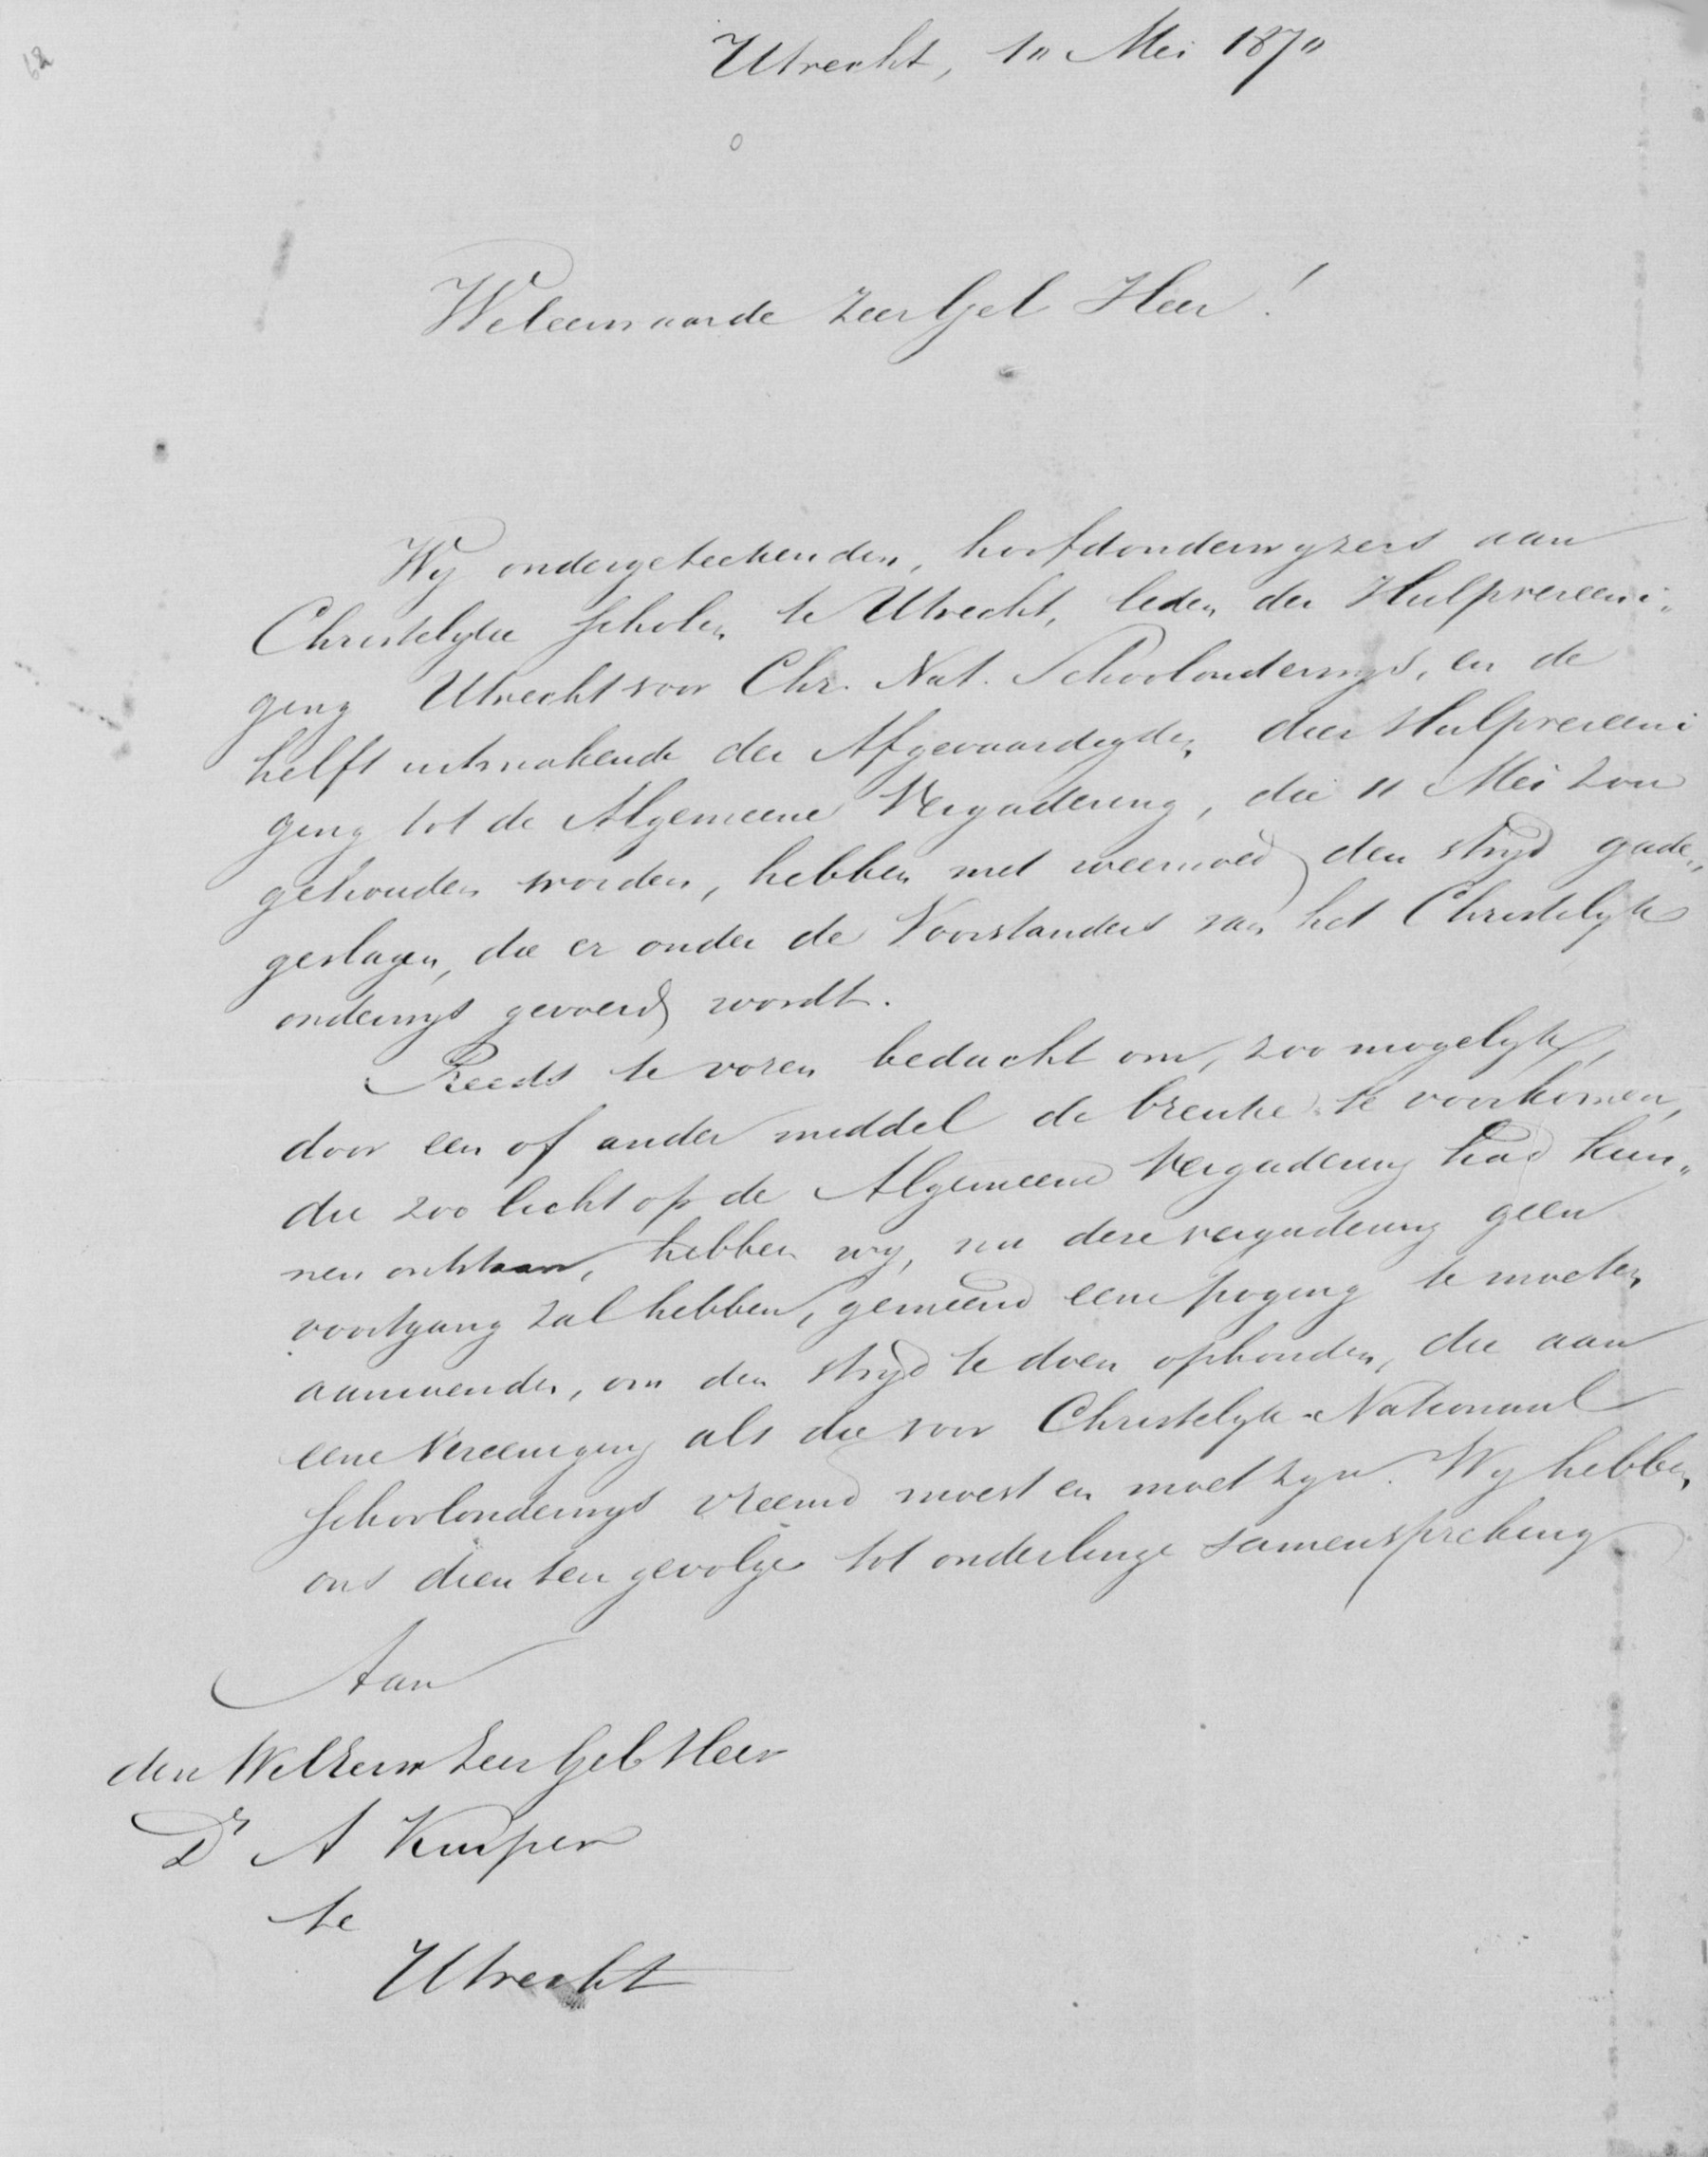 62
Utrecht, 10 Mei 1870
Weleerwaarde Zeer Gel Heer!
Wy ondergeteekenden, hoofdonderwyzers aan
Christelyke Scholen te Utrecht, leden der Hulpvereeni„
ging Utrecht voor Chr. Nat. Schoolonderwys, en de
helft uitmakende der Afgevaardigden dier Hulpvereeni
ging tot de Algemeene Vergadering, die 11 Mei zou
gehouden worden, hebben met weemoed den stryd gade„
geslagen, die er onder de Voorstanders van het Christelyk
onderwys gevoerd wordt.
Reeds te voren bedacht om, zoo mogelyk,
door een of ander middel de breuke te voorkomen,
die zoo licht op de Algemeene Vergadering had kun„
nen ontstaan, hebben wy, nu deze vergadering geen
voortgang zal hebben, gemeend eene poging te moeten
aanwenden, om den stryd te doen ophouden, die aan
eene Vereeniging als die voor Christelyk-Nationaal
Schoolonderwys vreemd moest en moet zyn. Wy hebben
ons dien ten gevolge tot onderlinge samenspreking
Aan
den WelEerw Zeer Gel Heer
Dr A Kuiper
te
Utrecht